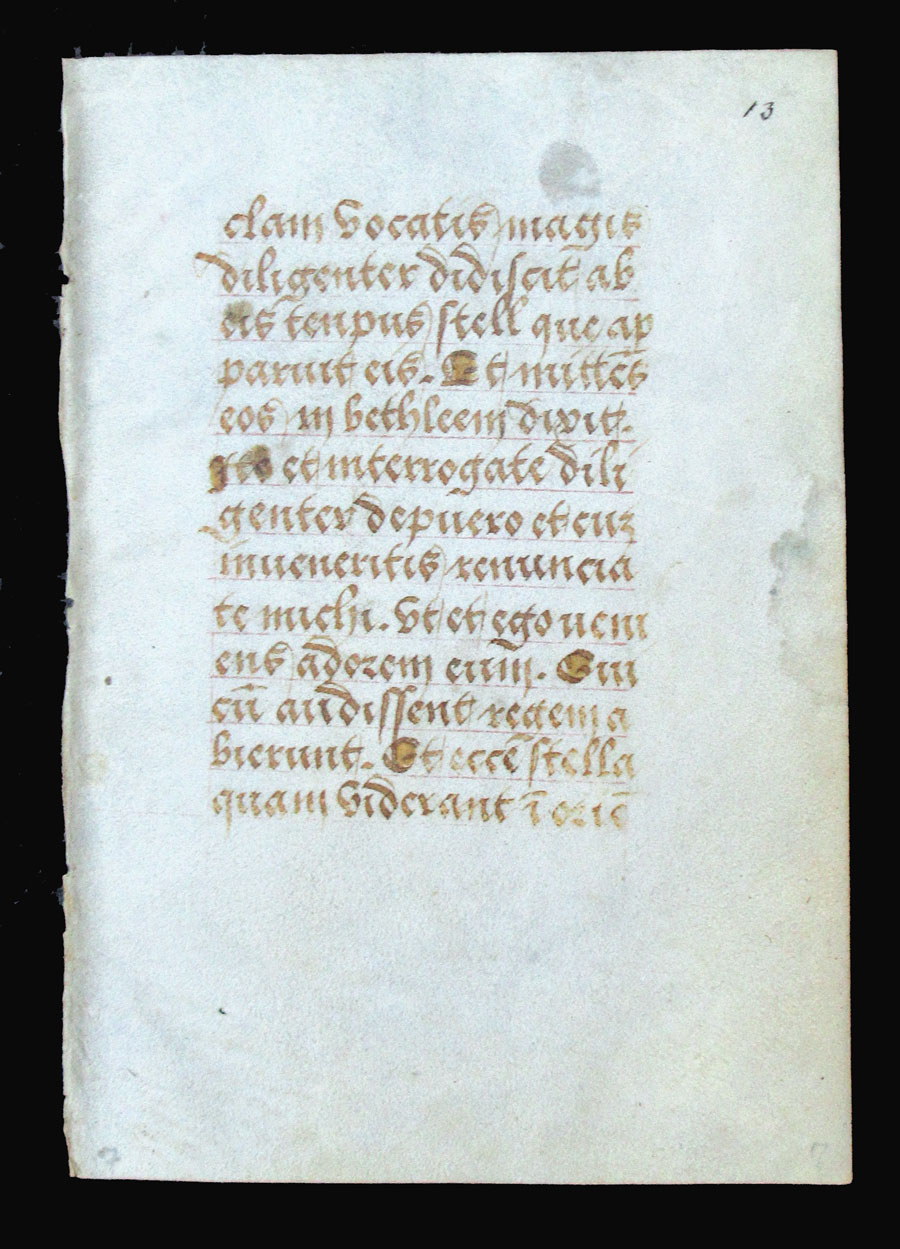 13
clam vocatis magis
diligenter didiscit ab
eis tēpus stell que ap
paruit eis. Et mittēs
eos in bethleem dixit.
Ite et interrogate dili
genter de puero et cuz
inueneritis renuncia
te michi. Vt et ego ueni
ens adorem eum. Qui
cū audissent regem a
bierunt. Et ecce stella
quam viderant ī oriē